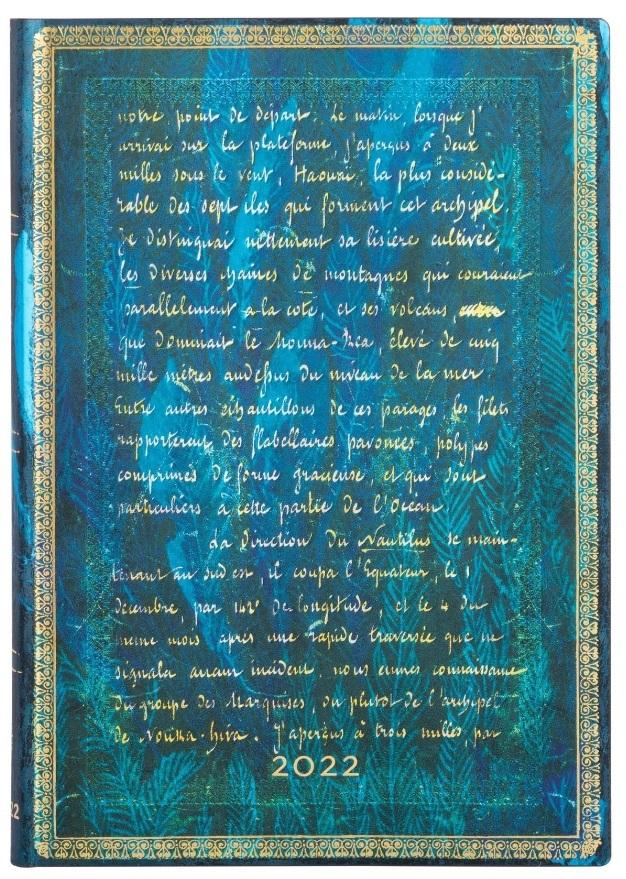 notre point de départ. Le matin, lorsque j'
arrivai sur la plateforme, j'aperçus à deux
milles sous le vent, Haouaï, la plus considé-
rable des sept iles qui forment cet archipel.
Je distinguai nettement sa lisière cultivée,
les diverses chaines de montagnes qui couraient
parallelement a la cote, et ses volcans,
que dominait le Mouna-Rea, élevé de cinq
mille mètres audessus du niveau de la mer.
Entre autres échantillons de ces parages, les filets
rapporterent des flabellaires pavonées, polypes
comprimés de forme gracieuse, et qui sont
particuliers à cette partie de l'Océan.
La direction du Nautilus se main-
tenant au sud est, il coupa l'Equateur, le 1
décembre, par 142° de longitude, et le 4 du
meme mois après une rapide traversée que ne
signala aucun incident, nous eumes connaissance
du groupe des Marquises, ou plutot de l'archipel
de Nouka-hiva. J'aperçus à trois milles, par
2022
22